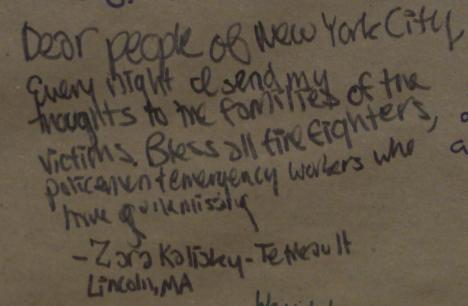 Dear people of New York City,
Every night I send my
thoughts to the families of the
victims. Bless all fire fighters,
policemen + emergency workers who
have
- Zara Kolisky-Tetreault
Lincoln, MA